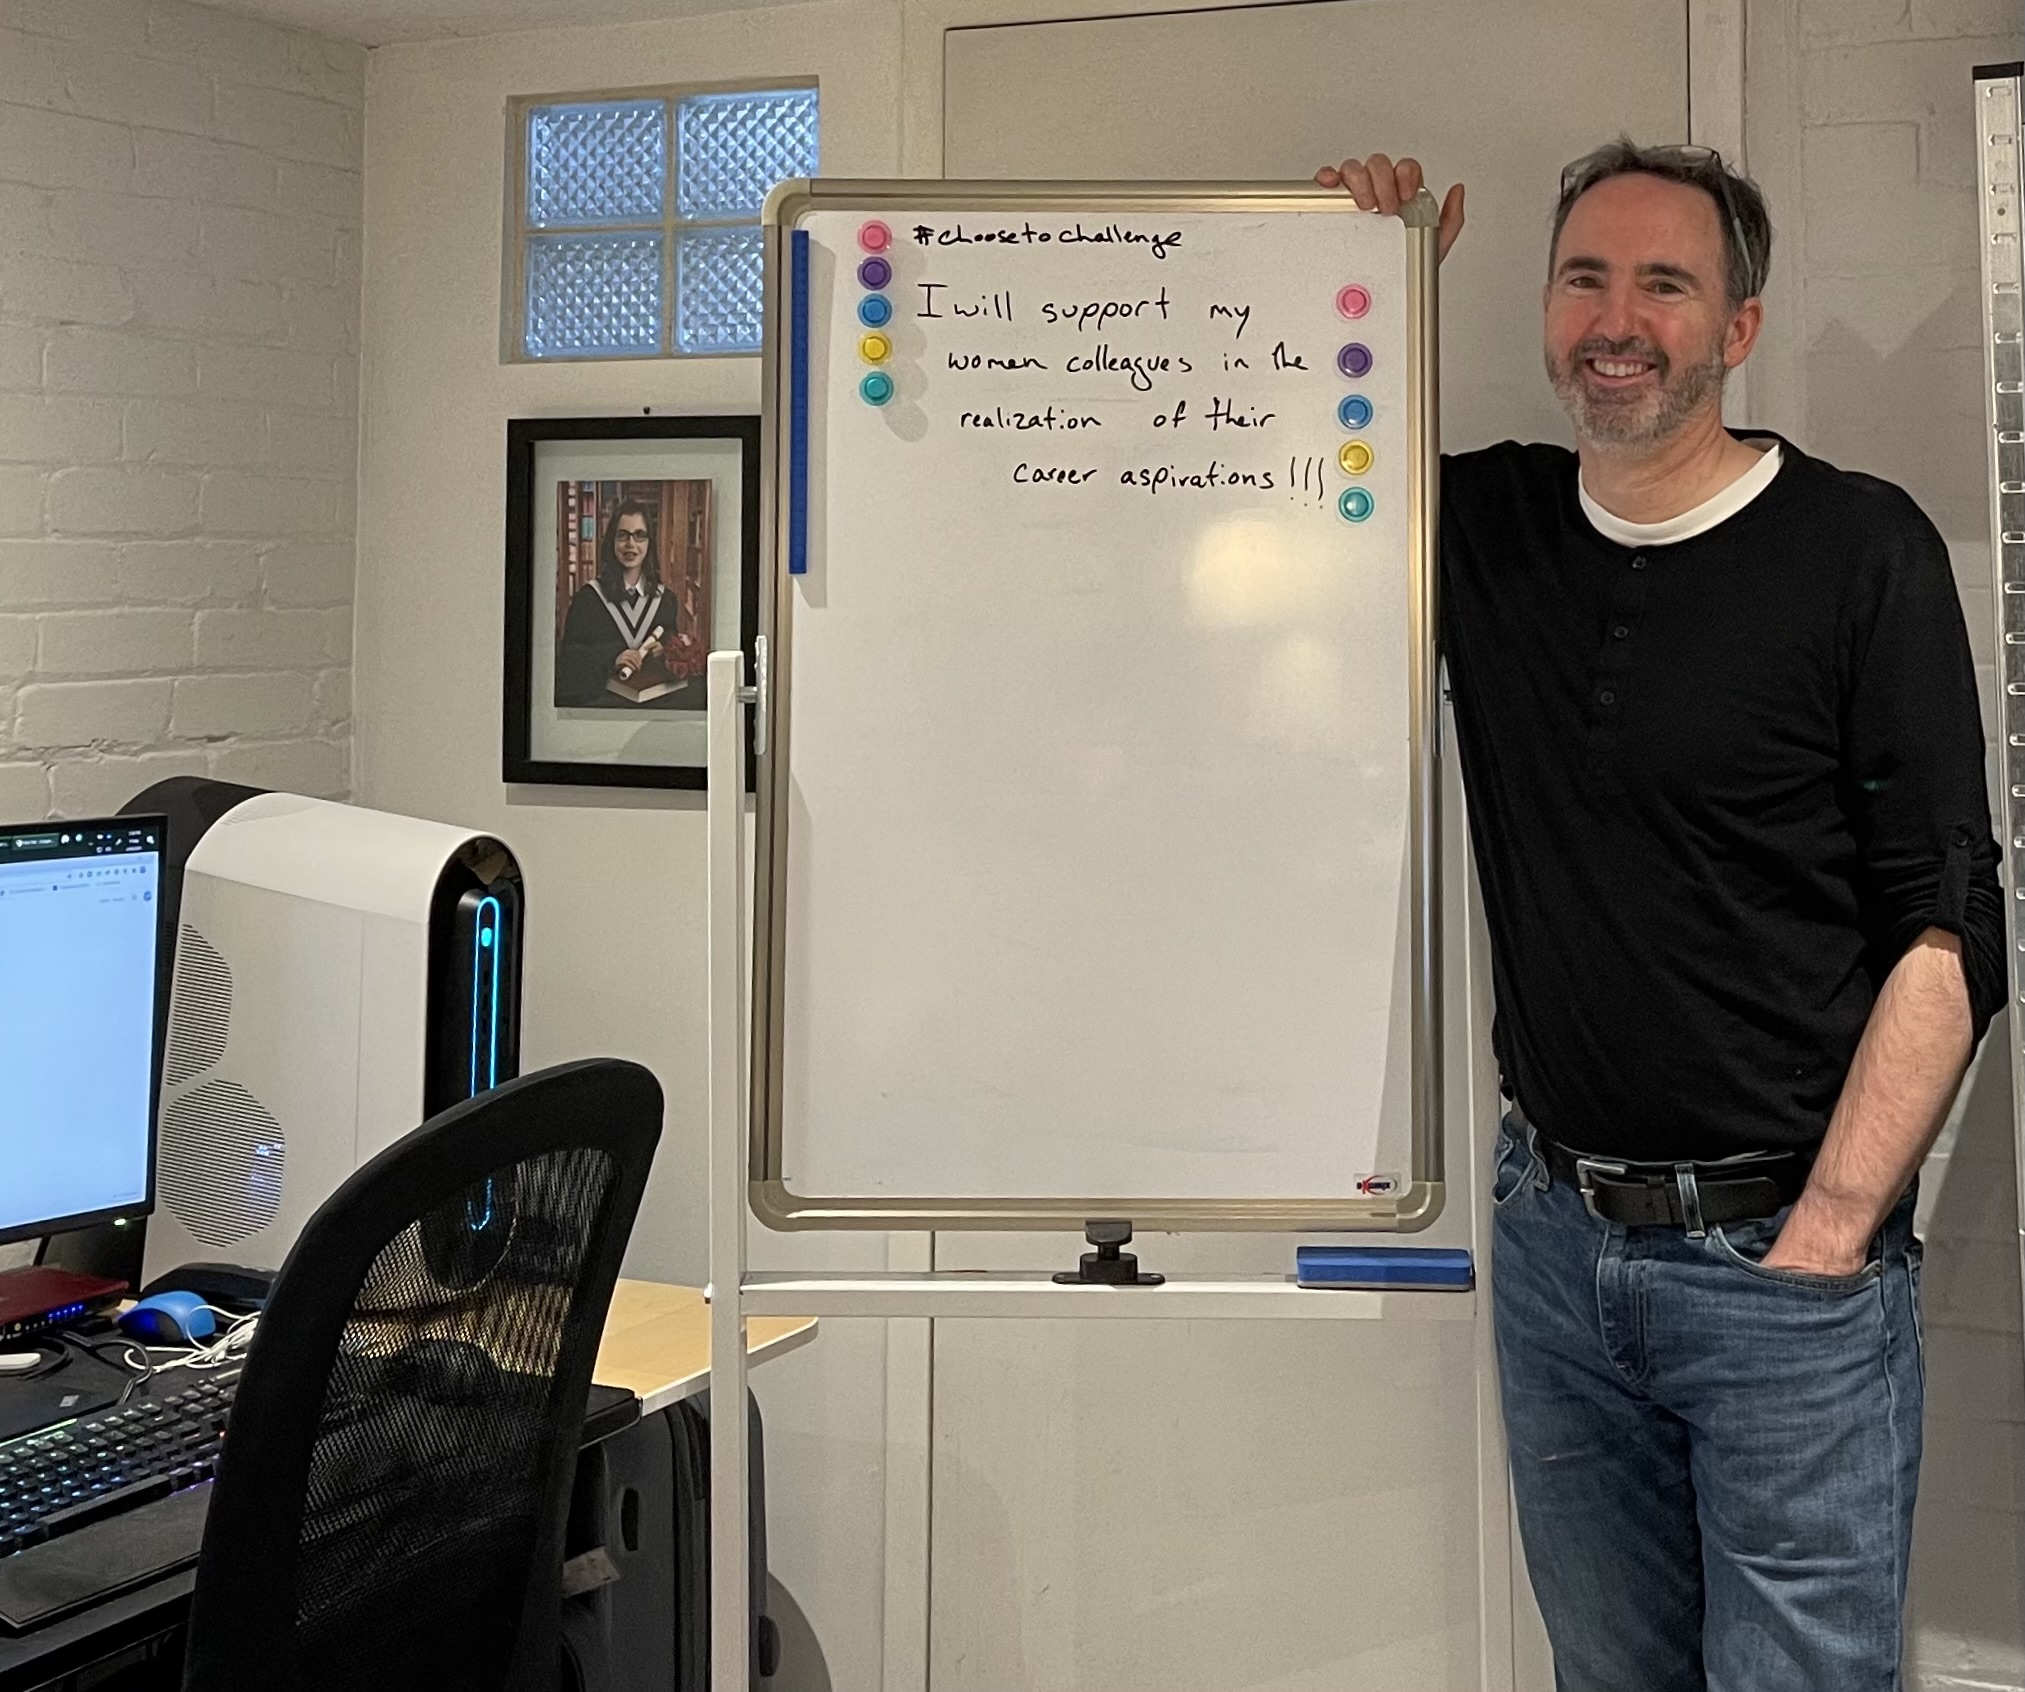 #choosetochallenge
I will support my
women colleagues in the
realization of their
career aspirations!!!